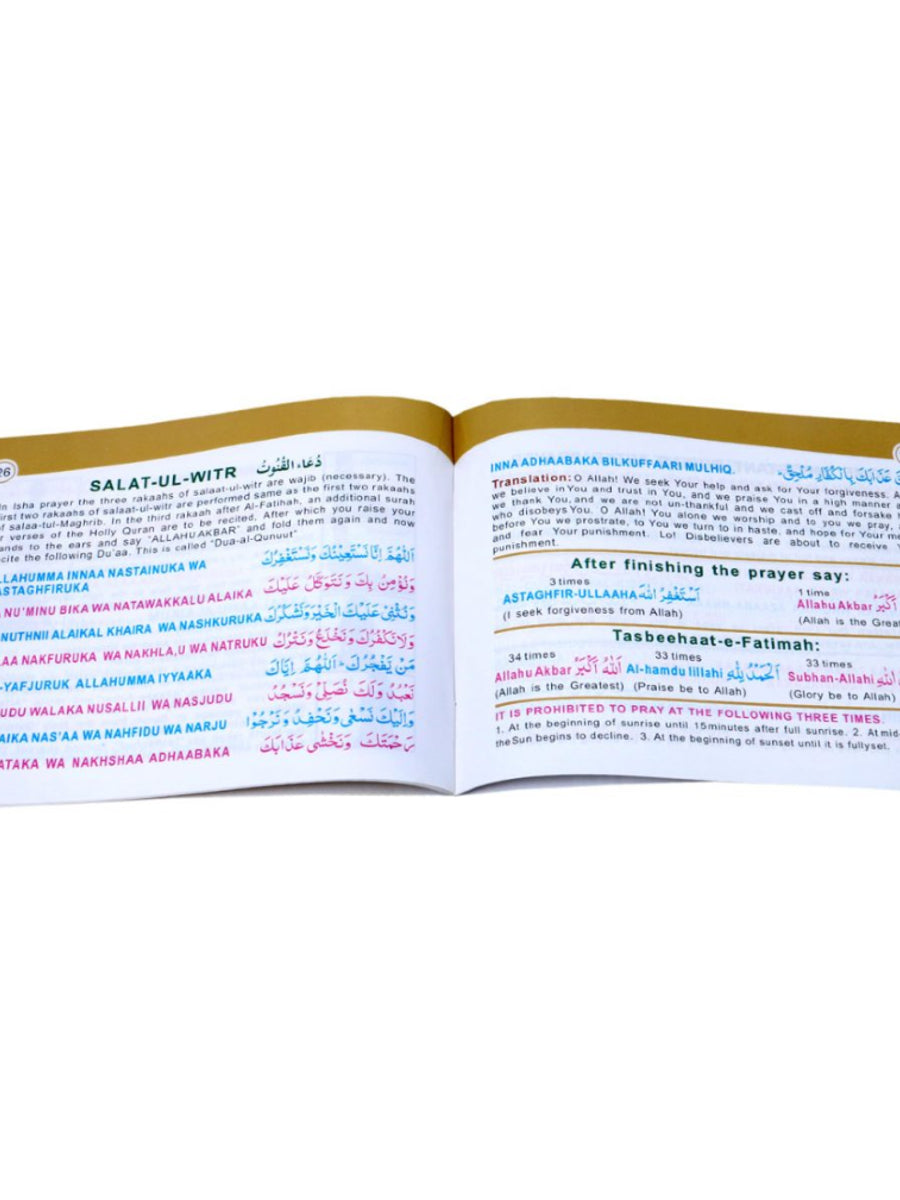 26
SALAT-UL-WITR دُعَاءُ الْقُنُوتُ
In Isha prayer the three rakaahs of salaat-ul-witr are wajib (necessary). The
first two rakaahs of salaat-ul-witr are performed same as the first two rakaahs
of salaa-tul-Maghrib. In the third rakaah after Al-Fatihah, an additional surah
or verses of the Holly Quran are to be recited, After which you raise your
ands to the ears and say “ALLAHU AKBAR” and fold them again and now
cite the following Du'aa. This is called “Dua-al-Qunuut”
LLAHUMMA INNAA NASTAINUKA WA
ASTAGHFIRUKA اَللّٰهُمَّ اِنَّا نَسْتَعِيْنُكَ وَنَسْتَغْفِرُكَ
A NU'MINU BIKA WA NATAWAKKALU ALAIKA وَنُؤْمِنُ بِكَ وَنَتَوَكَّلُ عَلَيْكَ
NUTHNII ALAIKAL KHAIRA WA NASHKURUKA وَنُثْنِيْ عَلَيْكَ الْخَيْرَ وَنَشْكُرُكَ
LAA NAKFURUKA WA NAKHLA,U WA NATRUKU وَلَا نَكْفُرُكَ وَنَخْلَعُ وَنَتْرُكُ
-YAFJURUK ALLAHUMMA IYYAAKA مَنْ يَفْجُرُكَ اَللّٰهُمَّ اِيَّاكَ
UDU WALAKA NUSALLII WA NASJUDU نَعْبُدُ وَلَكَ نُصَلِّيْ وَنَسْجُدُ
AIKA NAS'AA WA NAHFIDU WA NARJU وَاِلَيْكَ نَسْعٰى وَنَحْفِدُ وَنَرْجُوْا
ATAKA WA NAKHSHAA ADHAABAKA رَحْمَتَكَ وَنَخْشٰى عَذَابَكَ
INNA ADHAABAKA BILKUFFAARI MULHIQ. عَذَابَكَ بِالْكُفَّارِ مُلْحِقٌ
Translation: O Allah! We seek Your help and ask for Your forgiveness. A
we believe in You and trust in You, and we praise You in a high manner a
we thank You, and we are not un-thankful and we cast off and forsake
who disobeys You. O Allah! You alone we worship and to you we pray,
before You we prostrate, to You we turn to in haste, and hope for Your me
and fear Your punishment. Lo! Disbelievers are about to receive
punishment.
After finishing the prayer say:
3 times 1 time
ASTAGHFIR-ULLAAHA اَسْتَغْفِرُ اللّٰهَ Allahu Akbar اَكْبَرُ
(I seek forgiveness from Allah) (Allah is the Great
Tasbeehaat-e-Fatimah:
34 times 33 times 33 times
Allahu Akbar اَللّٰهُ اَكْبَرُ Al-hamdu lillahi اَلْحَمْدُ لِلّٰهِ Subhan-Allahi اللّٰهِ
(Allah is the Greatest) (Praise be to Allah) (Glory be to Allah)
IT IS PROHIBITED TO PRAY AT THE FOLLOWING THREE TIMES.
1. At the beginning of sunrise until 15minutes after full sunrise. 2. At mid-
the Sun begins to decline. 3. At the beginning of sunset until it is fullyset.